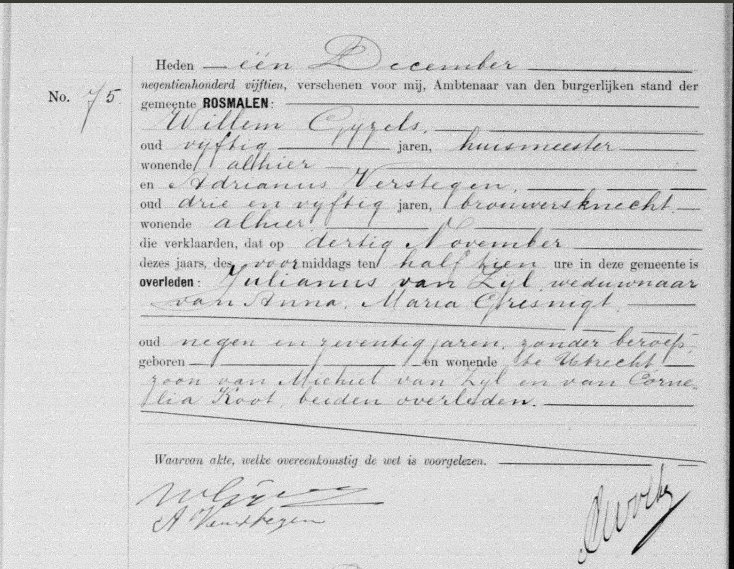 Heden één December
No. 75. negentienhonderd vijftien, verschenen voor mij, Ambtenaar van den burgerlijken stand der
gemeente ROSMALEN:
Willem Gyzels,
oud vyftig jaren, huismeester
wonende alhier
en Adrianus Verstegen,
oud drie en vyftig jaren, brouwersknecht
wonende alhier
die verklaarden, dat op dertig November
dezes jaars, des voormiddags ten half tien ure in deze gemeente is
overleden: Julianus van Zyl, weduwnaar
van Anna Maria Gresnigt,
oud negen en zeventig jaren, zonder beroep,
geboren en wonende te Utrecht
zoon van Michiel van Zyl en van Corne-
lia Koot, beiden overleden.
Waarvan akte, welke overeenkomstig de wet is voorgelezen.
A Verstegen